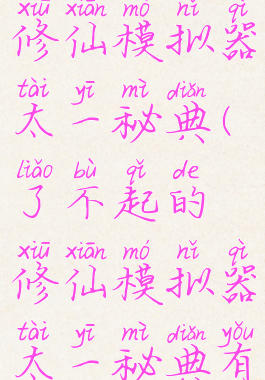 xiū xiān mó nǐ qì
修仙模拟器
tài yī mì diǎn
太一秘典(
liǎo bù qǐ de
了不起的
xiū xiān mó nǐ qì
修仙模拟器
tài yī mì diǎn yǒu
太一秘典有